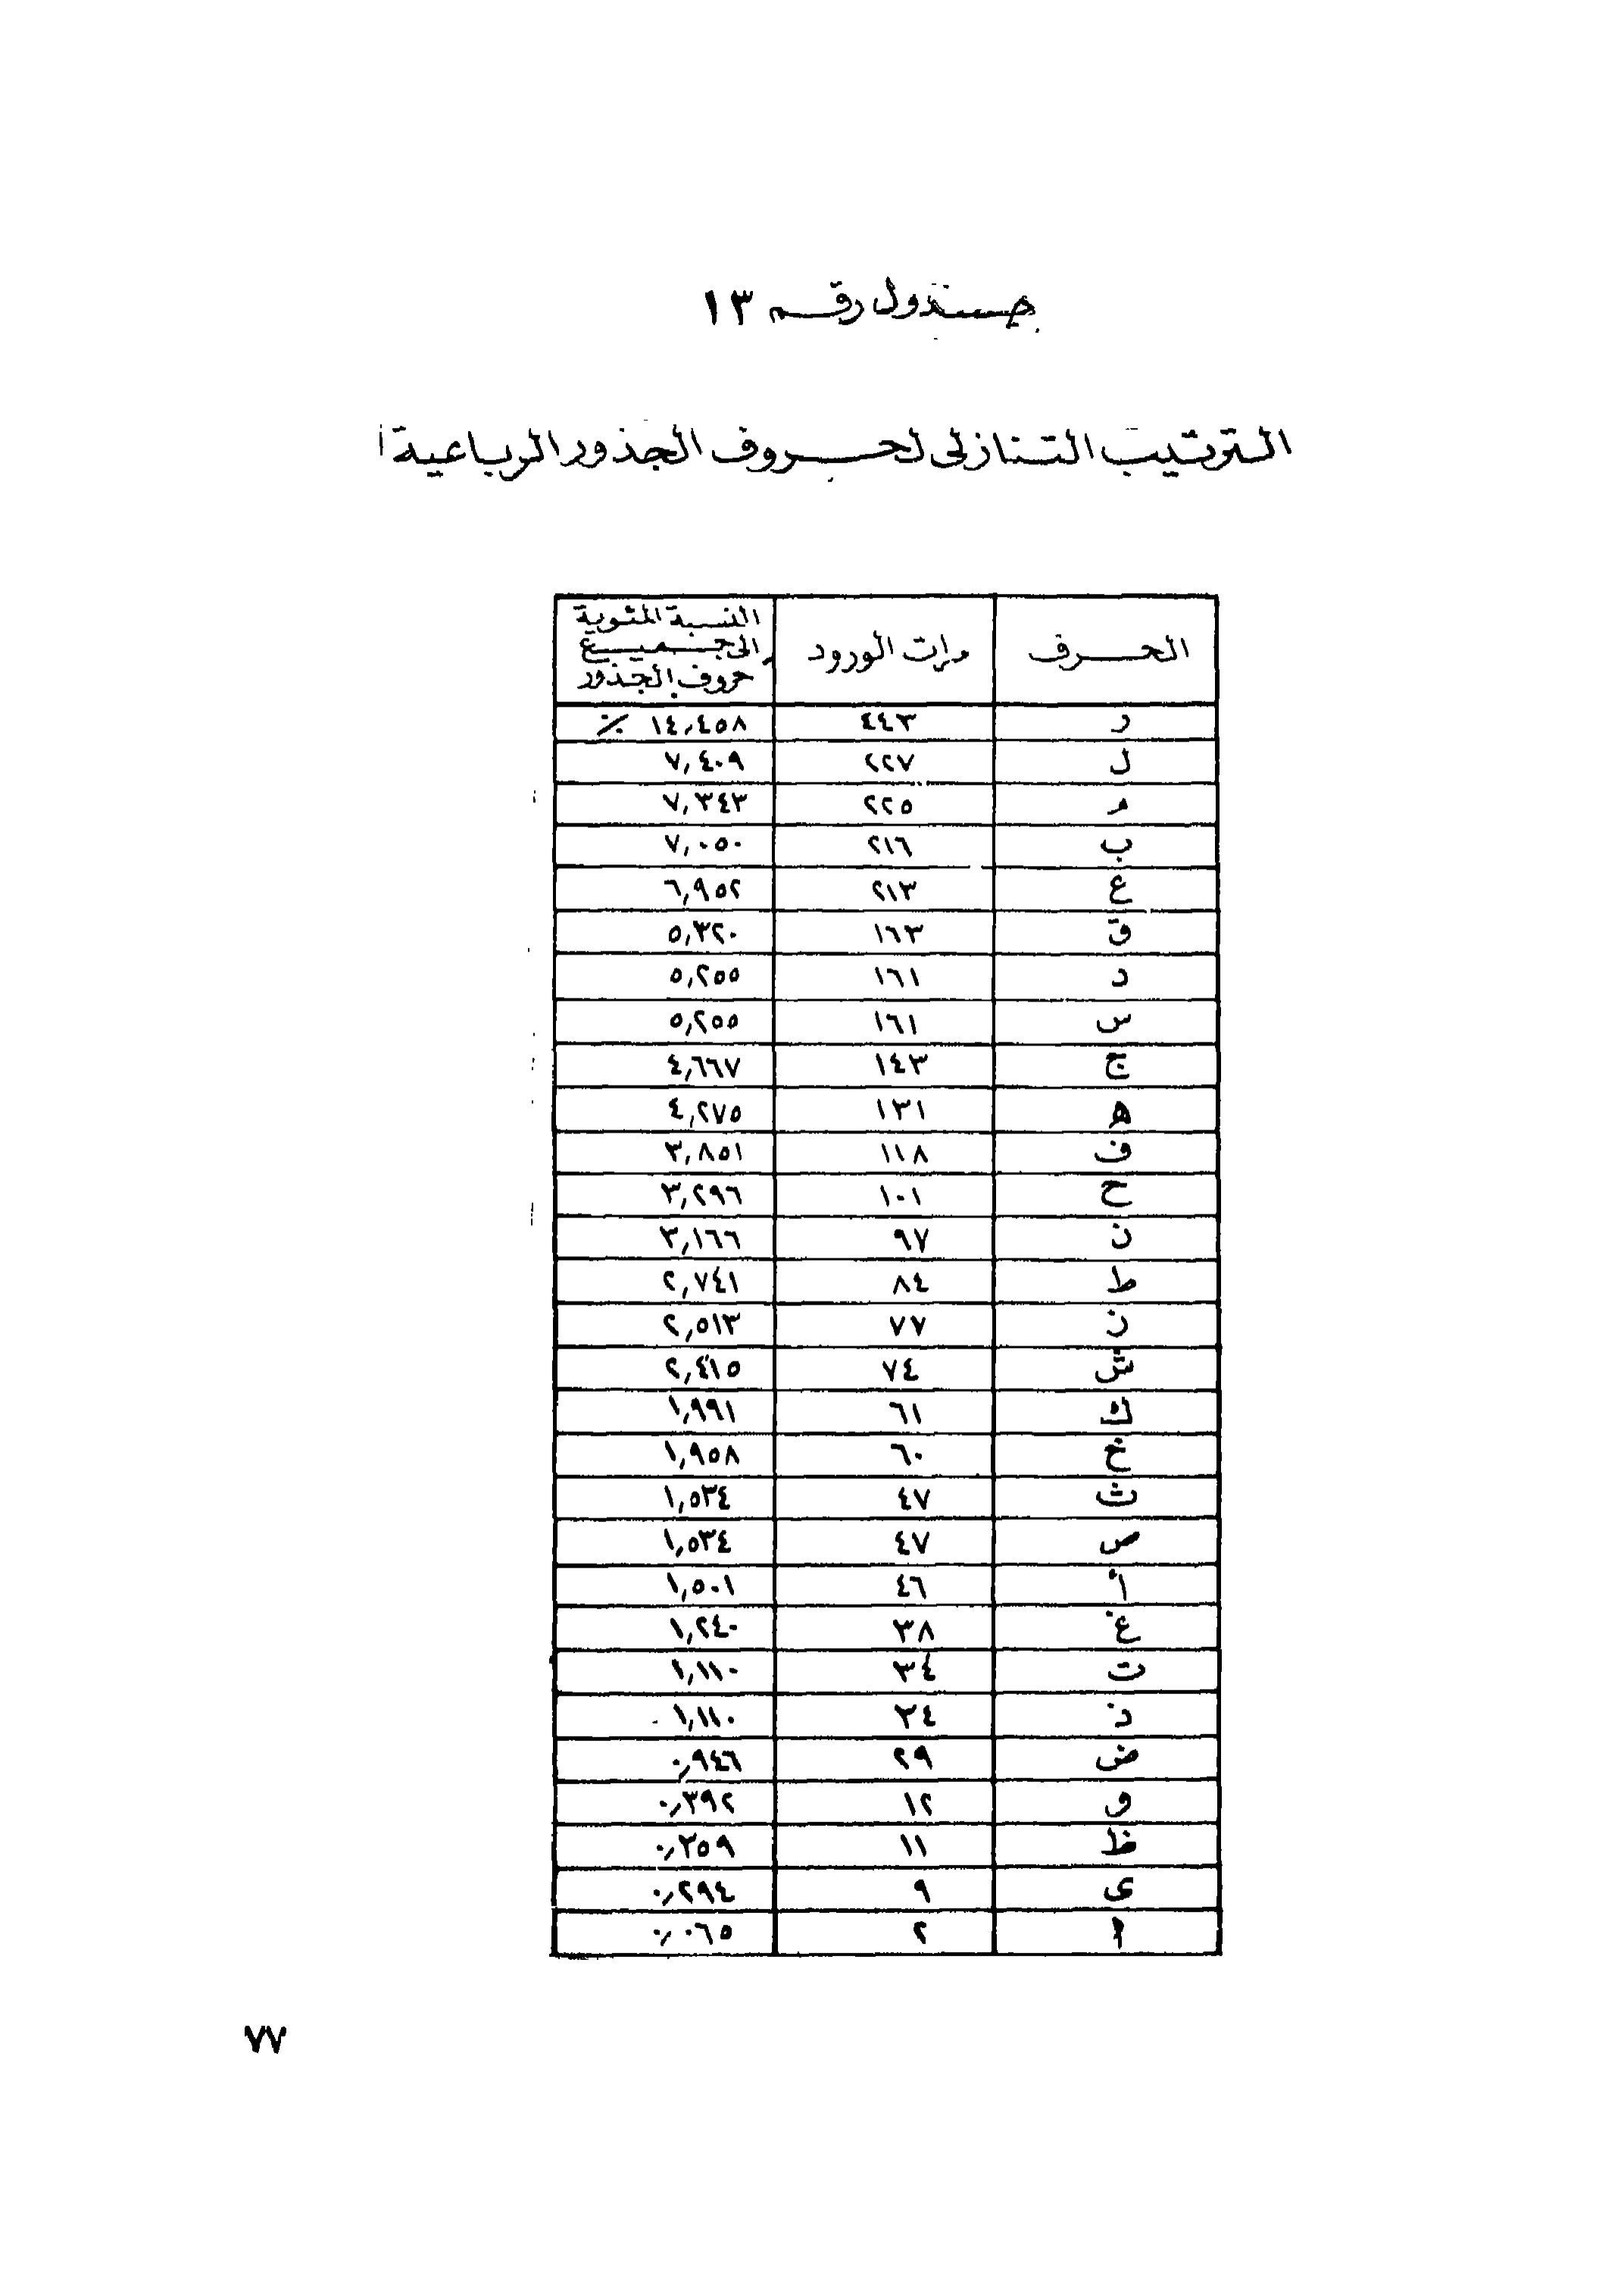 جدول رقم ١٣
الترتيب التنازلى لحروف الجذور الرباعية
الحرف مرات الورود النسبة المئوية الى جميع حروف الجذور
ر ٤٤٣ ١٤,٤٥٨ ٪
ل ٢٢٧ ٧,٤٠٩
م ٢٢٥ ٧,٣٤٣
ب ٢١٦ ٧,٠٥٠
ع ٢١٣ ٦,٩٥٢
ق ١٦٣ ٥,٣٢٠
د ١٦١ ٥,٢٥٥
س ١٦١ ٥,٢٥٥
ج ١٤٣ ٤,٦٦٧
ه ١٣١ ٤,٢٧٥
ف ١١٨ ٣,٨٥١
ح ١٠١ ٣,٢٩٦
ن ٩٧ ٣,١٦٦
ط ٨٤ ٢,٧٤١
ز ٧٧ ٢,٥١٣
ش ٧٤ ٢,٤١٥
ك ٦١ ١,٩٩١
خ ٦٠ ١,٩٥٨
ث ٤٧ ١,٥٣٤
ص ٤٧ ١,٥٣٤
أ ٤٦ ١,٥٠١
غ ٣٨ ١,٢٤٠
ت ٣٤ ١,١١٠
ذ ٣٤ ١,١١٠
ض ٢٩ ٠,٩٤٦
و ١٢ ٠,٣٩٢
ظ ١١ ٠,٣٥٩
ى ٩ ٠,٢٩٤
ا ٢ ٠,٠٦٥
٧٧